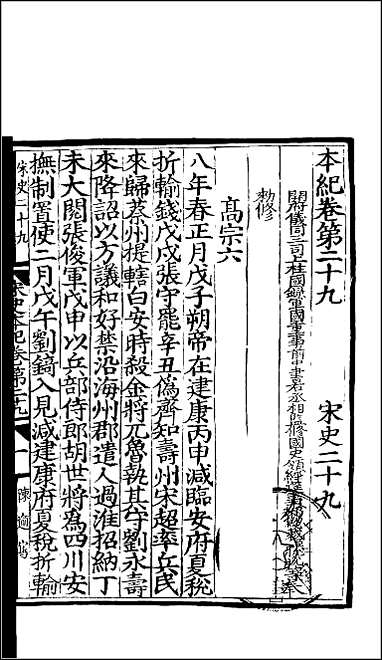 本紀卷第二十九　宋史二十九
開府儀同三司上柱國錄軍國重事前中書右丞相監修國史領經筵事都總裁臣脫脫奉
勑修
高宗六
八年春正月戊子朔帝在建康丙申減臨安府夏稅
折輸錢戊戌張守罷辛丑偽齊知壽州宋超率兵民
來歸蔡州提轄白安時殺金將兀魯執其守劉永壽
來降詔以方議和好禁沿海州郡遣人過淮招納丁
未大閱張俊軍戊申以兵部侍郎胡世將爲四川安
撫制置使二月戊午劉錡入見減建康府夏稅折輸
宋史二十九
宋史本紀卷第二十九
一
陳